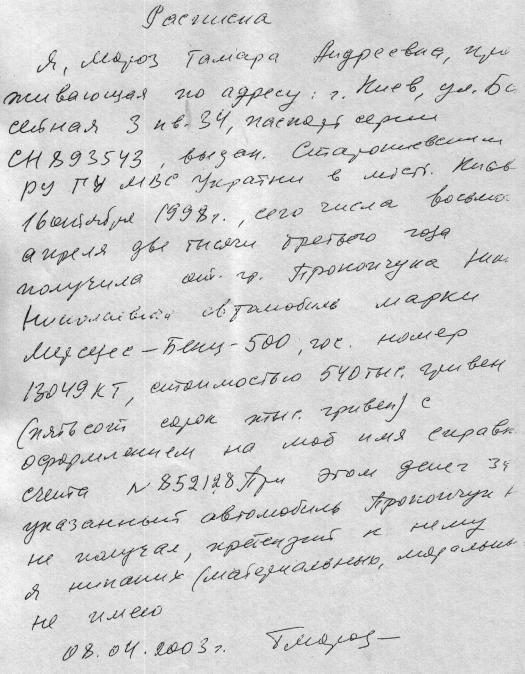 Расписка
Я, Мороз Тамара Андреевна, про
живающая по адресу: г. Киев, ул. Ба
сейная 3 кв. 34, паспорт серии
СН 893543, выдан. Старокиевским
РУ ГУ МВС України в місті. Києві
16 октября 1998г., сего числа восьмо
апреля две тысячи третьего года
получила от. гр. Прокопчука Ник
Николаевича автомобиль марки
Мерседес – Бенц - 500, гос. номер
13049 КТ, стоимостью 540 тыс. гривен
(пятьсот сорок тыс. гривен) с
оформлением на моё имя справк
счета N 852128. При этом денег за
указанный автомобиль Прокопчук Н
не получал, претензий к нему
я никаких (материальных, моральных
не имею
08.04.2003г. ТМороз